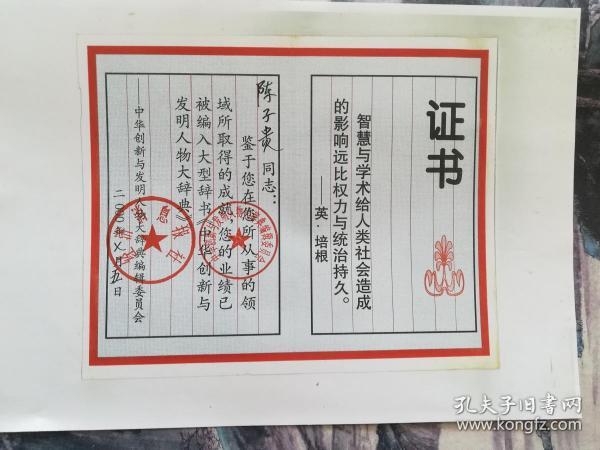 证书
智慧与学术给人类社会造成
的影响远比权力与统治持久。
——英·培根
陈子贵同志：
鉴于您在您所从事的领
域所取得的成绩，您的业绩已
被编入大型辞书《中华创新与
发明人物大辞典》
——中华创新与发明人物大辞典编辑委员会
二000年八月五日
孔夫子旧书网
www.kongfz.com